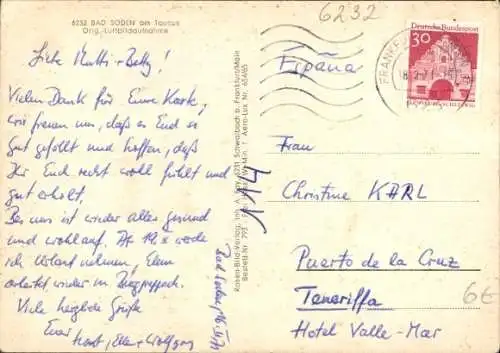 6232 BAD SODEN am Taunus
Orig.-Luftbildaufnahme
6232
Liebe Mutti + Betty!
Vielen Dank für Eure Karte,
wir freuen uns, daß es Euch so
gut gefällt und hoffen, daß
Ihr Euch recht wohl fühlt und
gut erholt.
Bei uns ist wieder alles gesund
und wohlauf. Ab 19. werde
ich Urlaub nehmen,
arbeitet wieder im
Viele herzliche Grüße
Eure
Horst, + Wolfgang
Bad Soden,
Rosen-Bild-Verlag, Inh. A. 6231 Schwalbach b. Frankfurt/Main
Bestell Nr. 793 Min. f. Aero-Lux Nr. 654/65
K14
España
Deutsche Bundespost
30
FRANKF
Frau
Christine KARL
Puerto de la Cruz
Teneriffa
Hotel Valle-Mar
6€